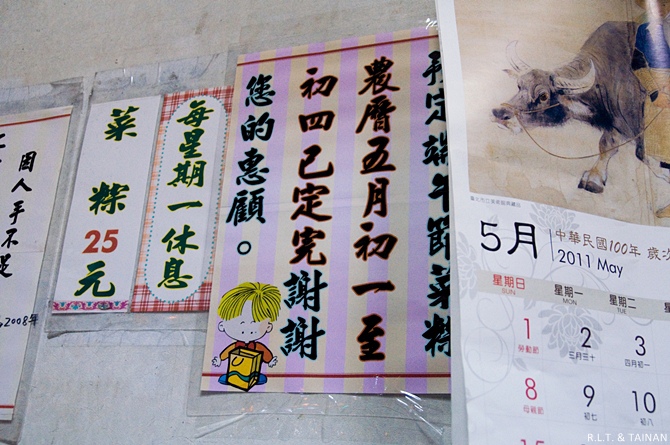 因人手不足
2008年
菜粽25元
每星期一休息
定端午節菜粽
農曆五月初一至
初四已定完謝謝
您的惠顧。
5月 中華民國100年 歲次
2011 May
星期日 星期一 星期二
SUN MON TUE
1 2 3
勞動節 三月三十 四月初一
8 9 10
母親節 初七 初八
15
R.L.T. & TAINAN